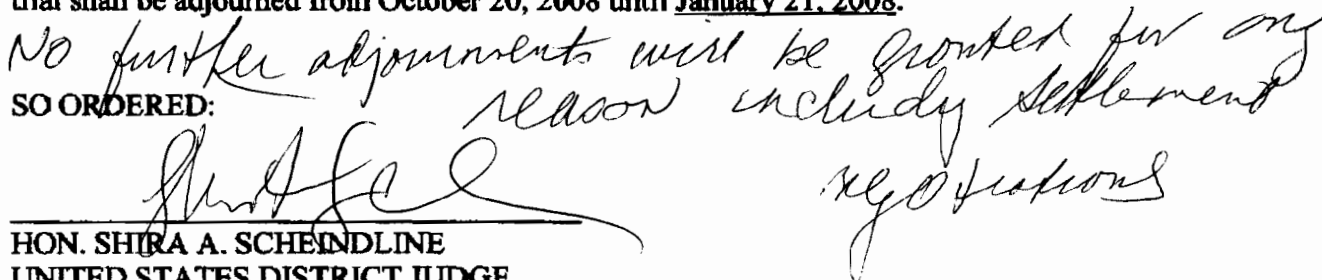 trial shall be adjourned from October 20, 2008 until January 21, 2008.
No further adjournments will be granted for any
reason including settlement
negotiations
SO ORDERED:
HON. SHIRA A. SCHEINDLINE
UNITED STATES DISTRICT JUDGE